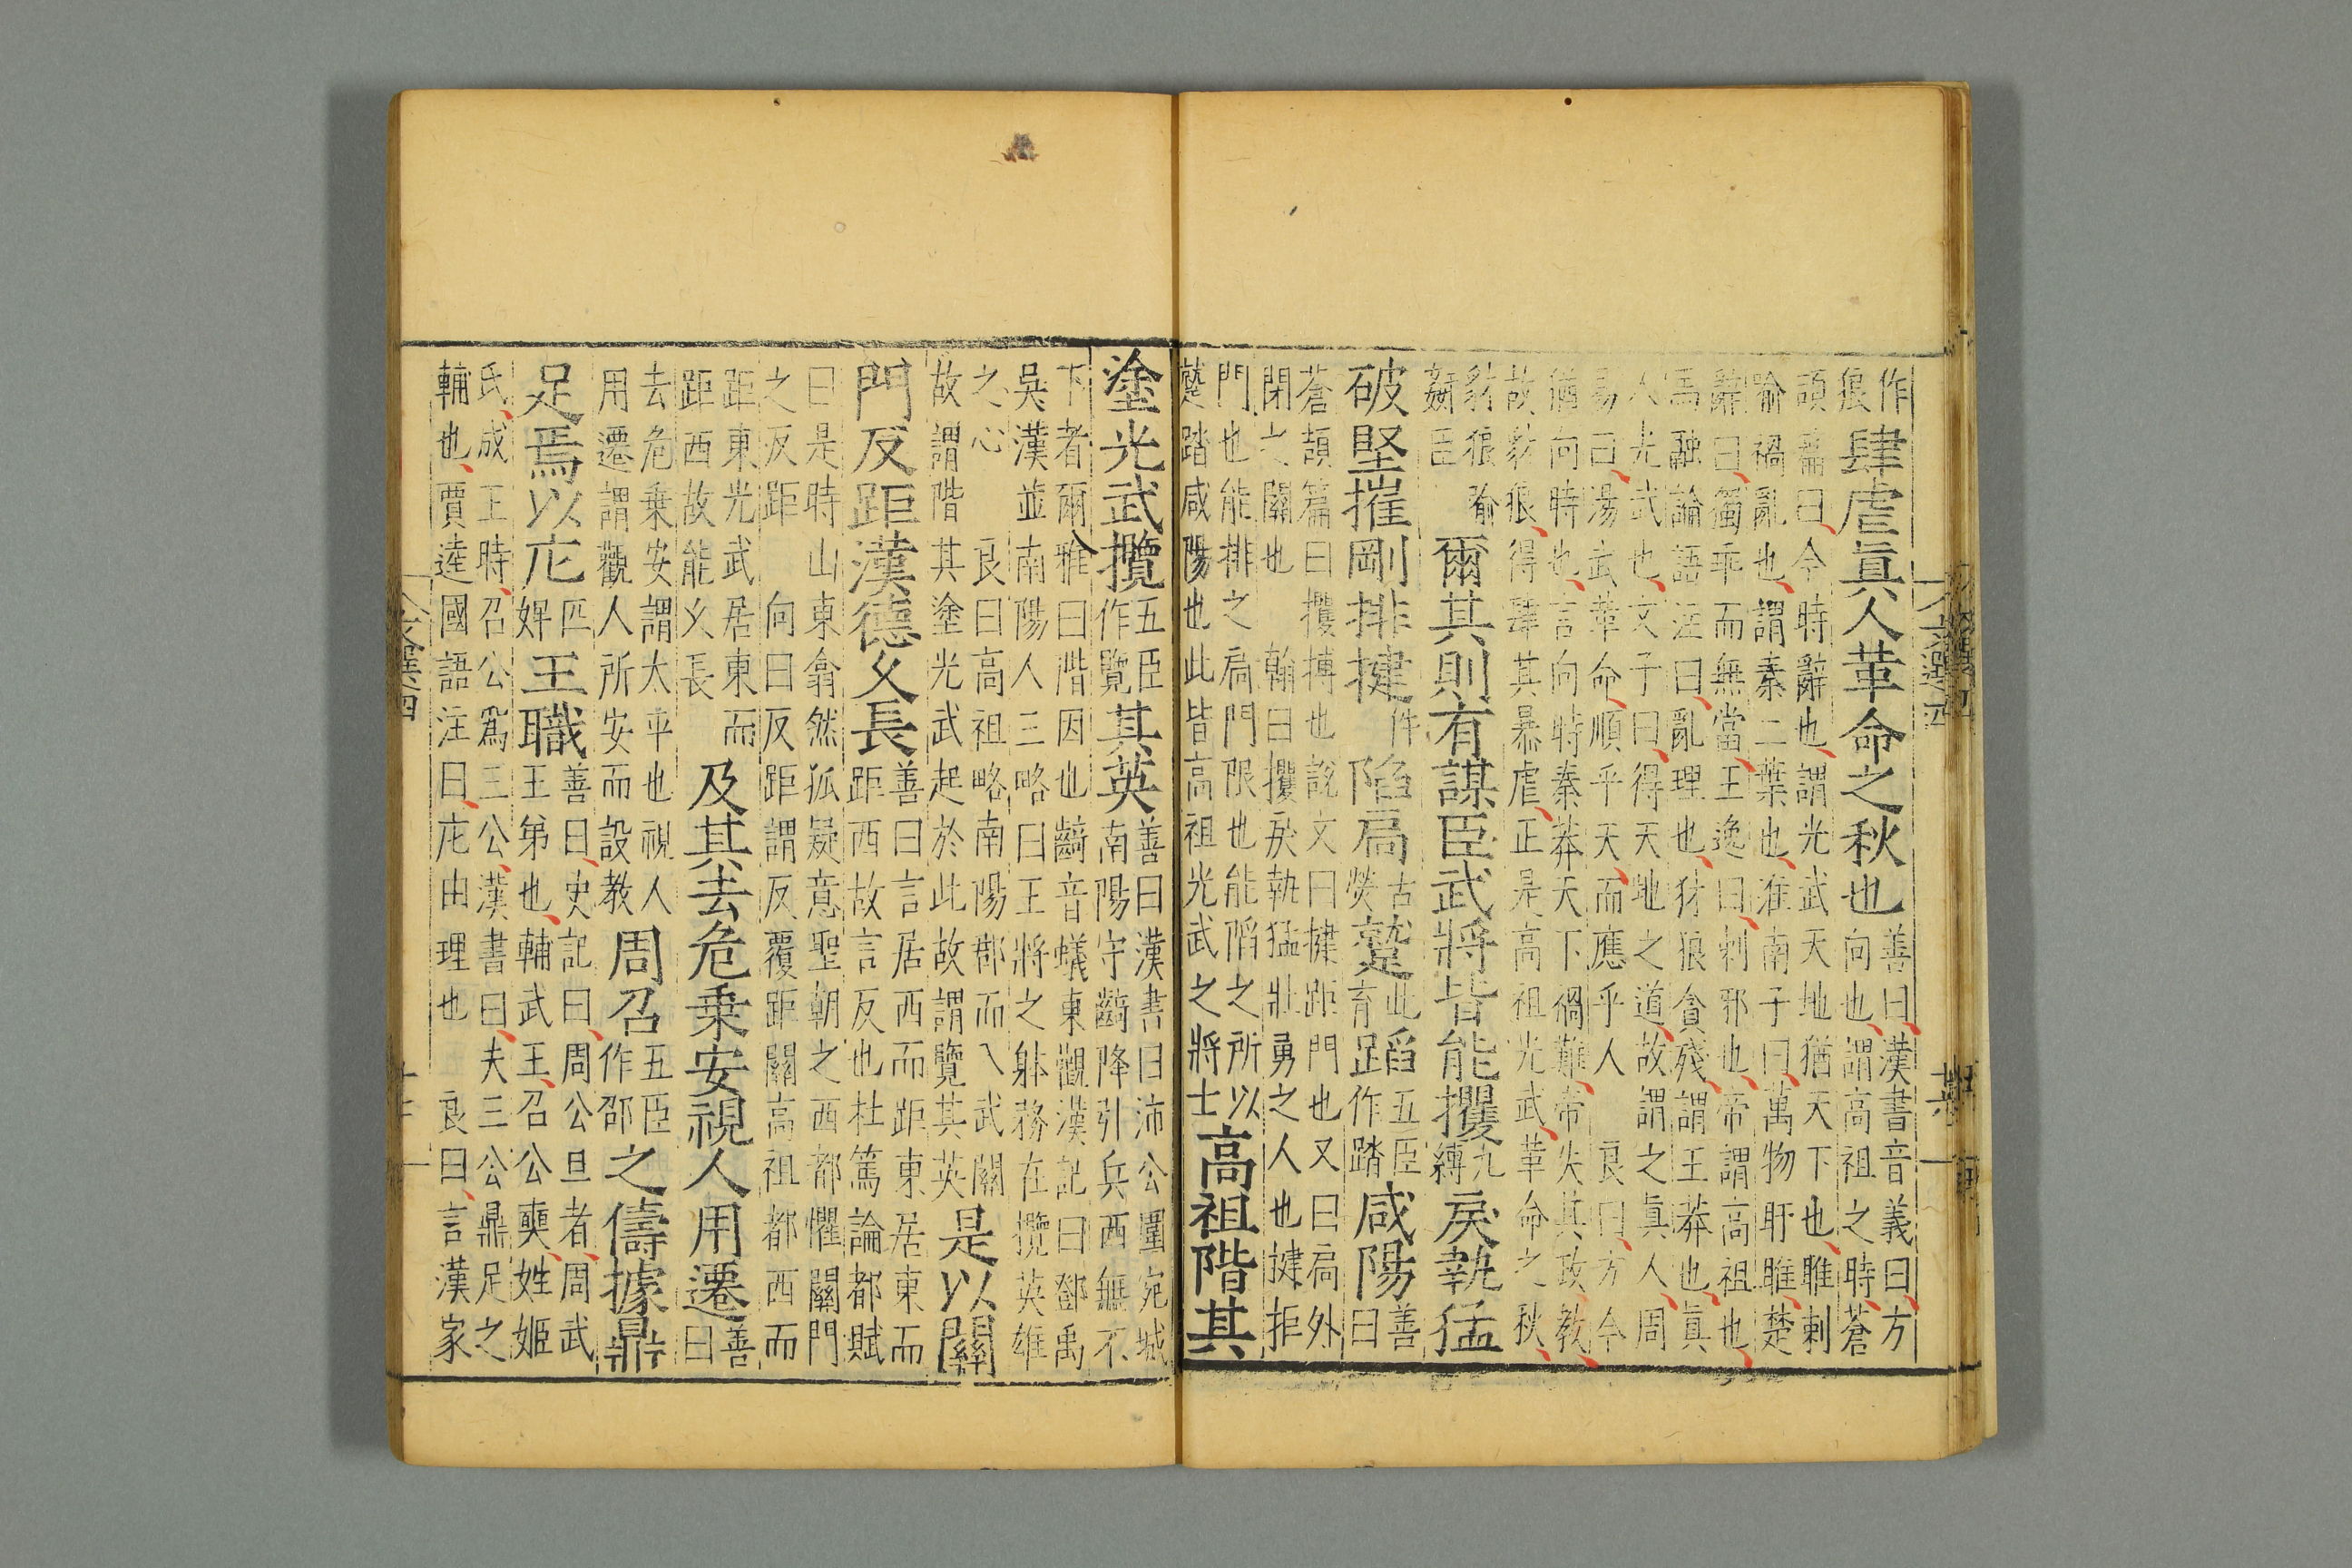 作狼肆虐眞人革命之秋也善曰漢書音義曰方向也謂高祖之時蒼
頡篇曰今時辭也謂光武天地猶天下也睢刺喻禍亂也謂秦二葉也淮南子曰萬物盱睢楚
辭曰獨乖而無當王逸曰刺邪也帝謂高祖也馬融論語注曰亂理也豺狼貪殘謂王莽也眞
人光武也文子曰得天地之道故謂之眞人周易曰湯武革命順乎天而應乎人 良曰方今
猶向時也言向時秦莽天下禍難帝失其政教故豺狼得肆其暴虐正是高祖光武革命之秋
豺狼喻姦臣 爾其則有謀臣武將皆能攫九縛戾執猛
破堅摧剛排揵件陷扃古熒蹵此育蹈五臣作踏咸陽善曰
蒼頡篇曰攫搏也說文曰揵距門也又曰扃外閉之關也 翰曰攫戾執猛壯勇之人也揵拒
門也能排之扃門限也能陷之所以蹵踏咸陽也此皆高祖光武之將士高祖階其
塗光武攬五臣作覽其英善曰漢書曰沛公圍宛城南陽守齮降引兵西無不
下者爾雅曰階因也齮音蟻東觀漢記曰鄧禹吳漢並南陽人三略曰王將之躰務在攬英雄
之心 良曰高祖略南陽郡而入武關故謂階其塗光武起於此故謂覽其英是以關
門反距漢德久長善曰言居西而距東居東而距西故言反也杜篤論都賦
曰是時山東翕然狐疑意聖朝之西都懼關門之反距 向曰反距謂反覆距關高祖都西而
距東光武居東而距西故能久長 及其去危乗安視人用遷善曰
去危乗安謂太平也視人用遷謂觀人所安而設教周召五臣作邵之儔據鼎
足焉以庀匹婢王職善曰史記曰周公旦者周武王弟也輔武王召公奭姓姬
氏成王時召公為三公漢書曰夫三公鼎足之輔也賈逵國語注曰庀由理也 良曰言漢家
文選四